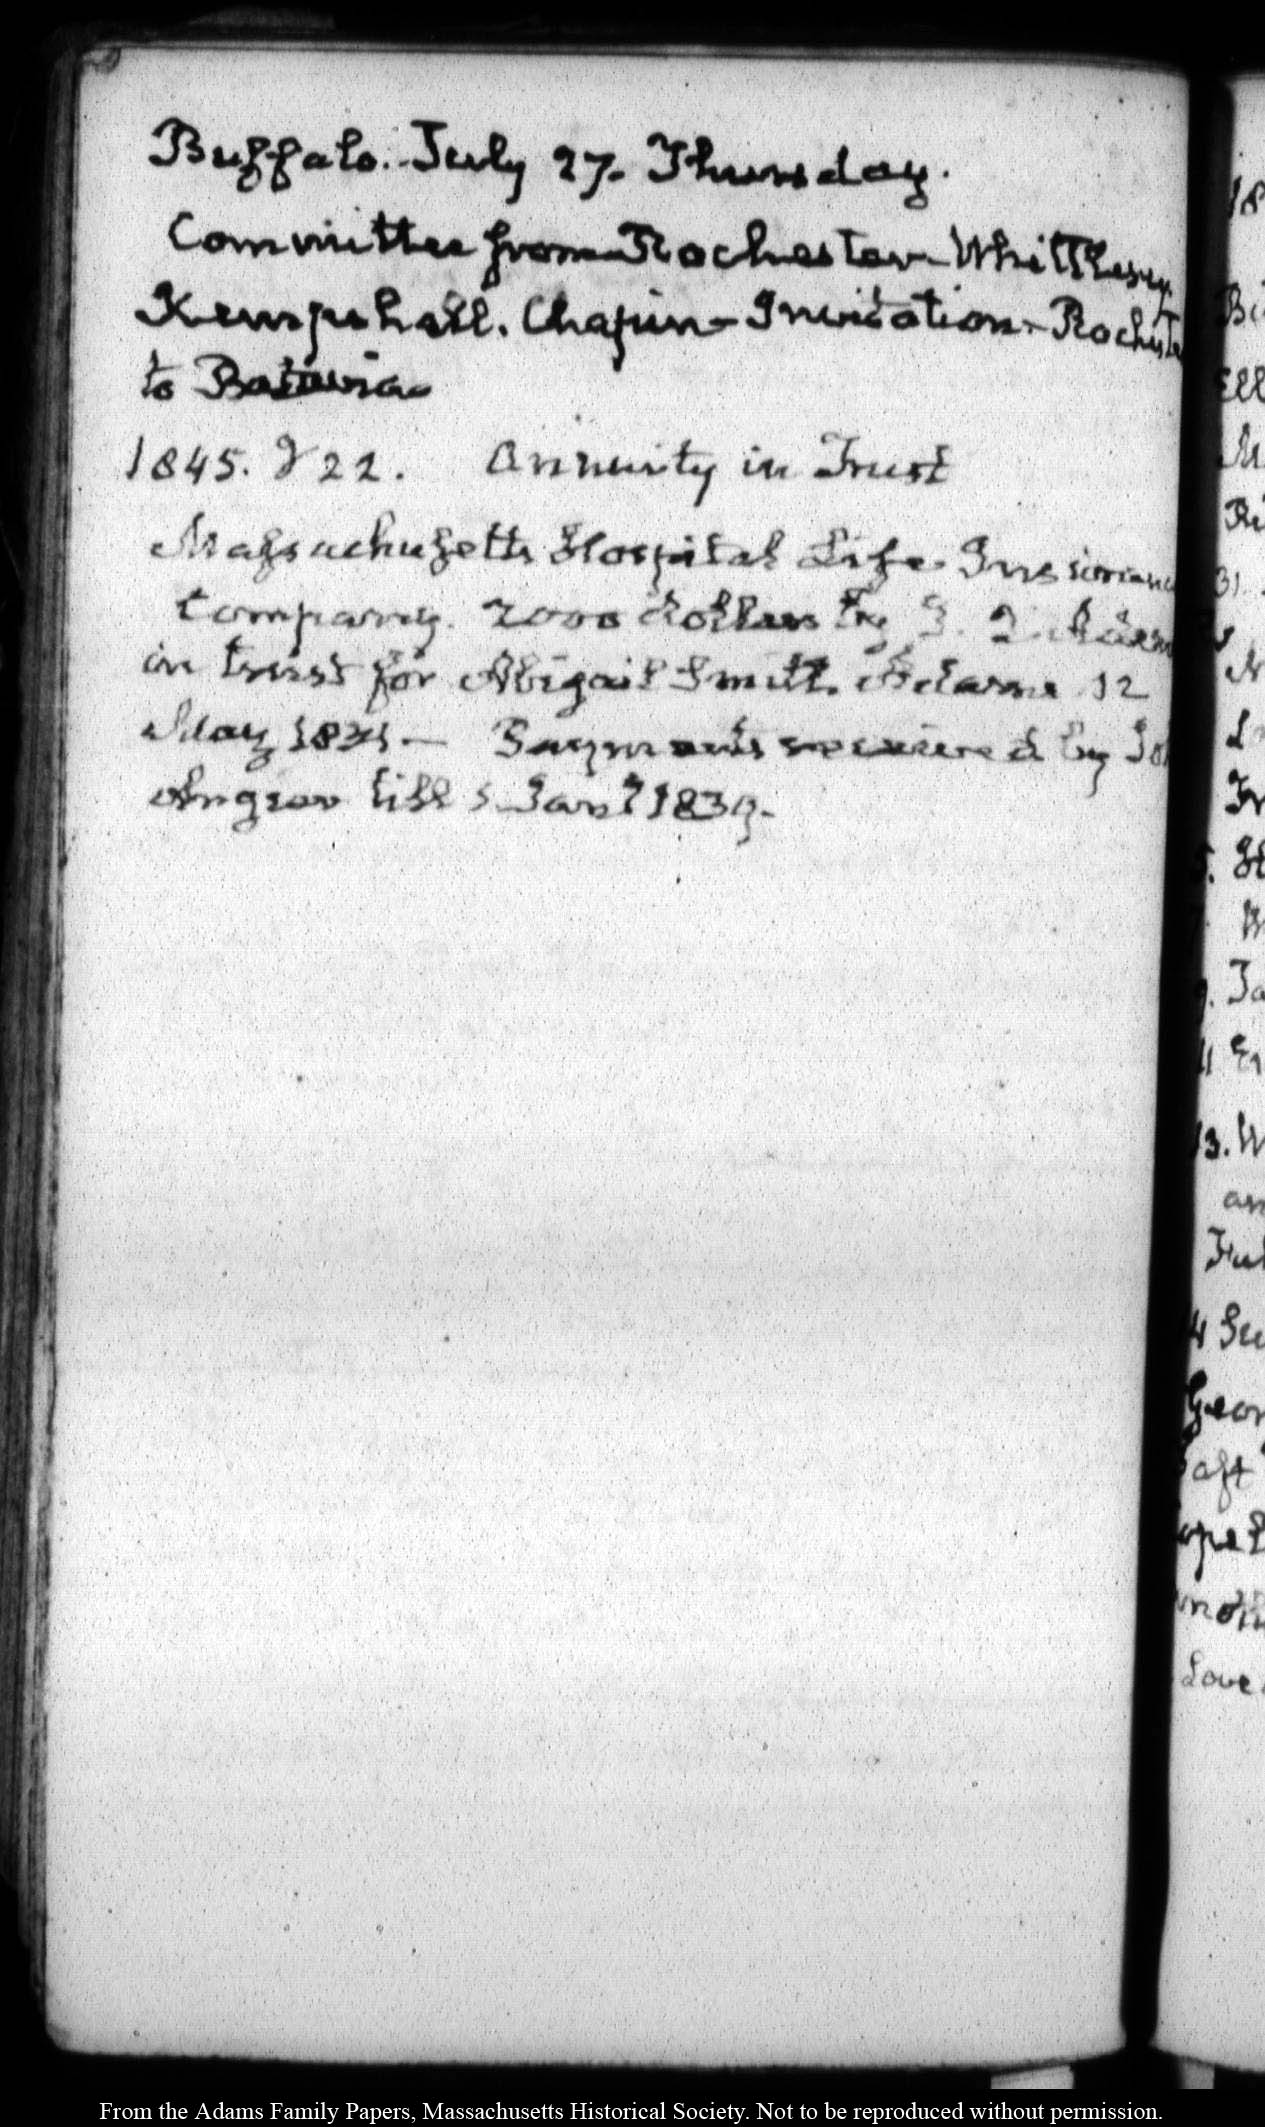 Buffalo. July 27. Thursday.
Committee from Rochester Whittlesey
Kempshall. Chapin - Invitation - Rocheste
to Batavia
1845. 22. Annuity in Trust
Massachusetts Hospital Life Insurance
Company. 2000 dollars by J. Q. Adam
in trust for Abigail Smith Adams 12
May 1831 — Payments received by Joh
Angier till 5 Jany 1839.
18
Ell
5.
13. W
an
aft
Love
From the Adams Family Papers, Massachusetts Historical Society. Not to be reproduced without permission.